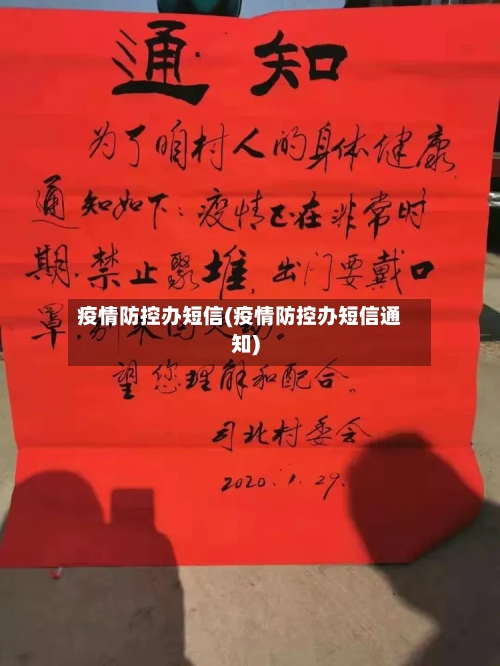 通知
为了咱村人的身体健康
通知如下：疫情已在非常时
期.禁止聚堆,出门要戴口
罩,
疫情防控办短信(疫情防控办短信通
知)
望您理解和配合。
司北村委会
2020.1.29.